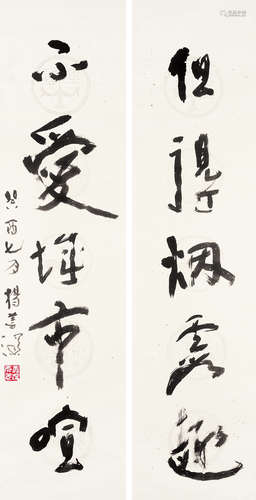 但烟霞
不愛城市喧
癸酉七月楊善深